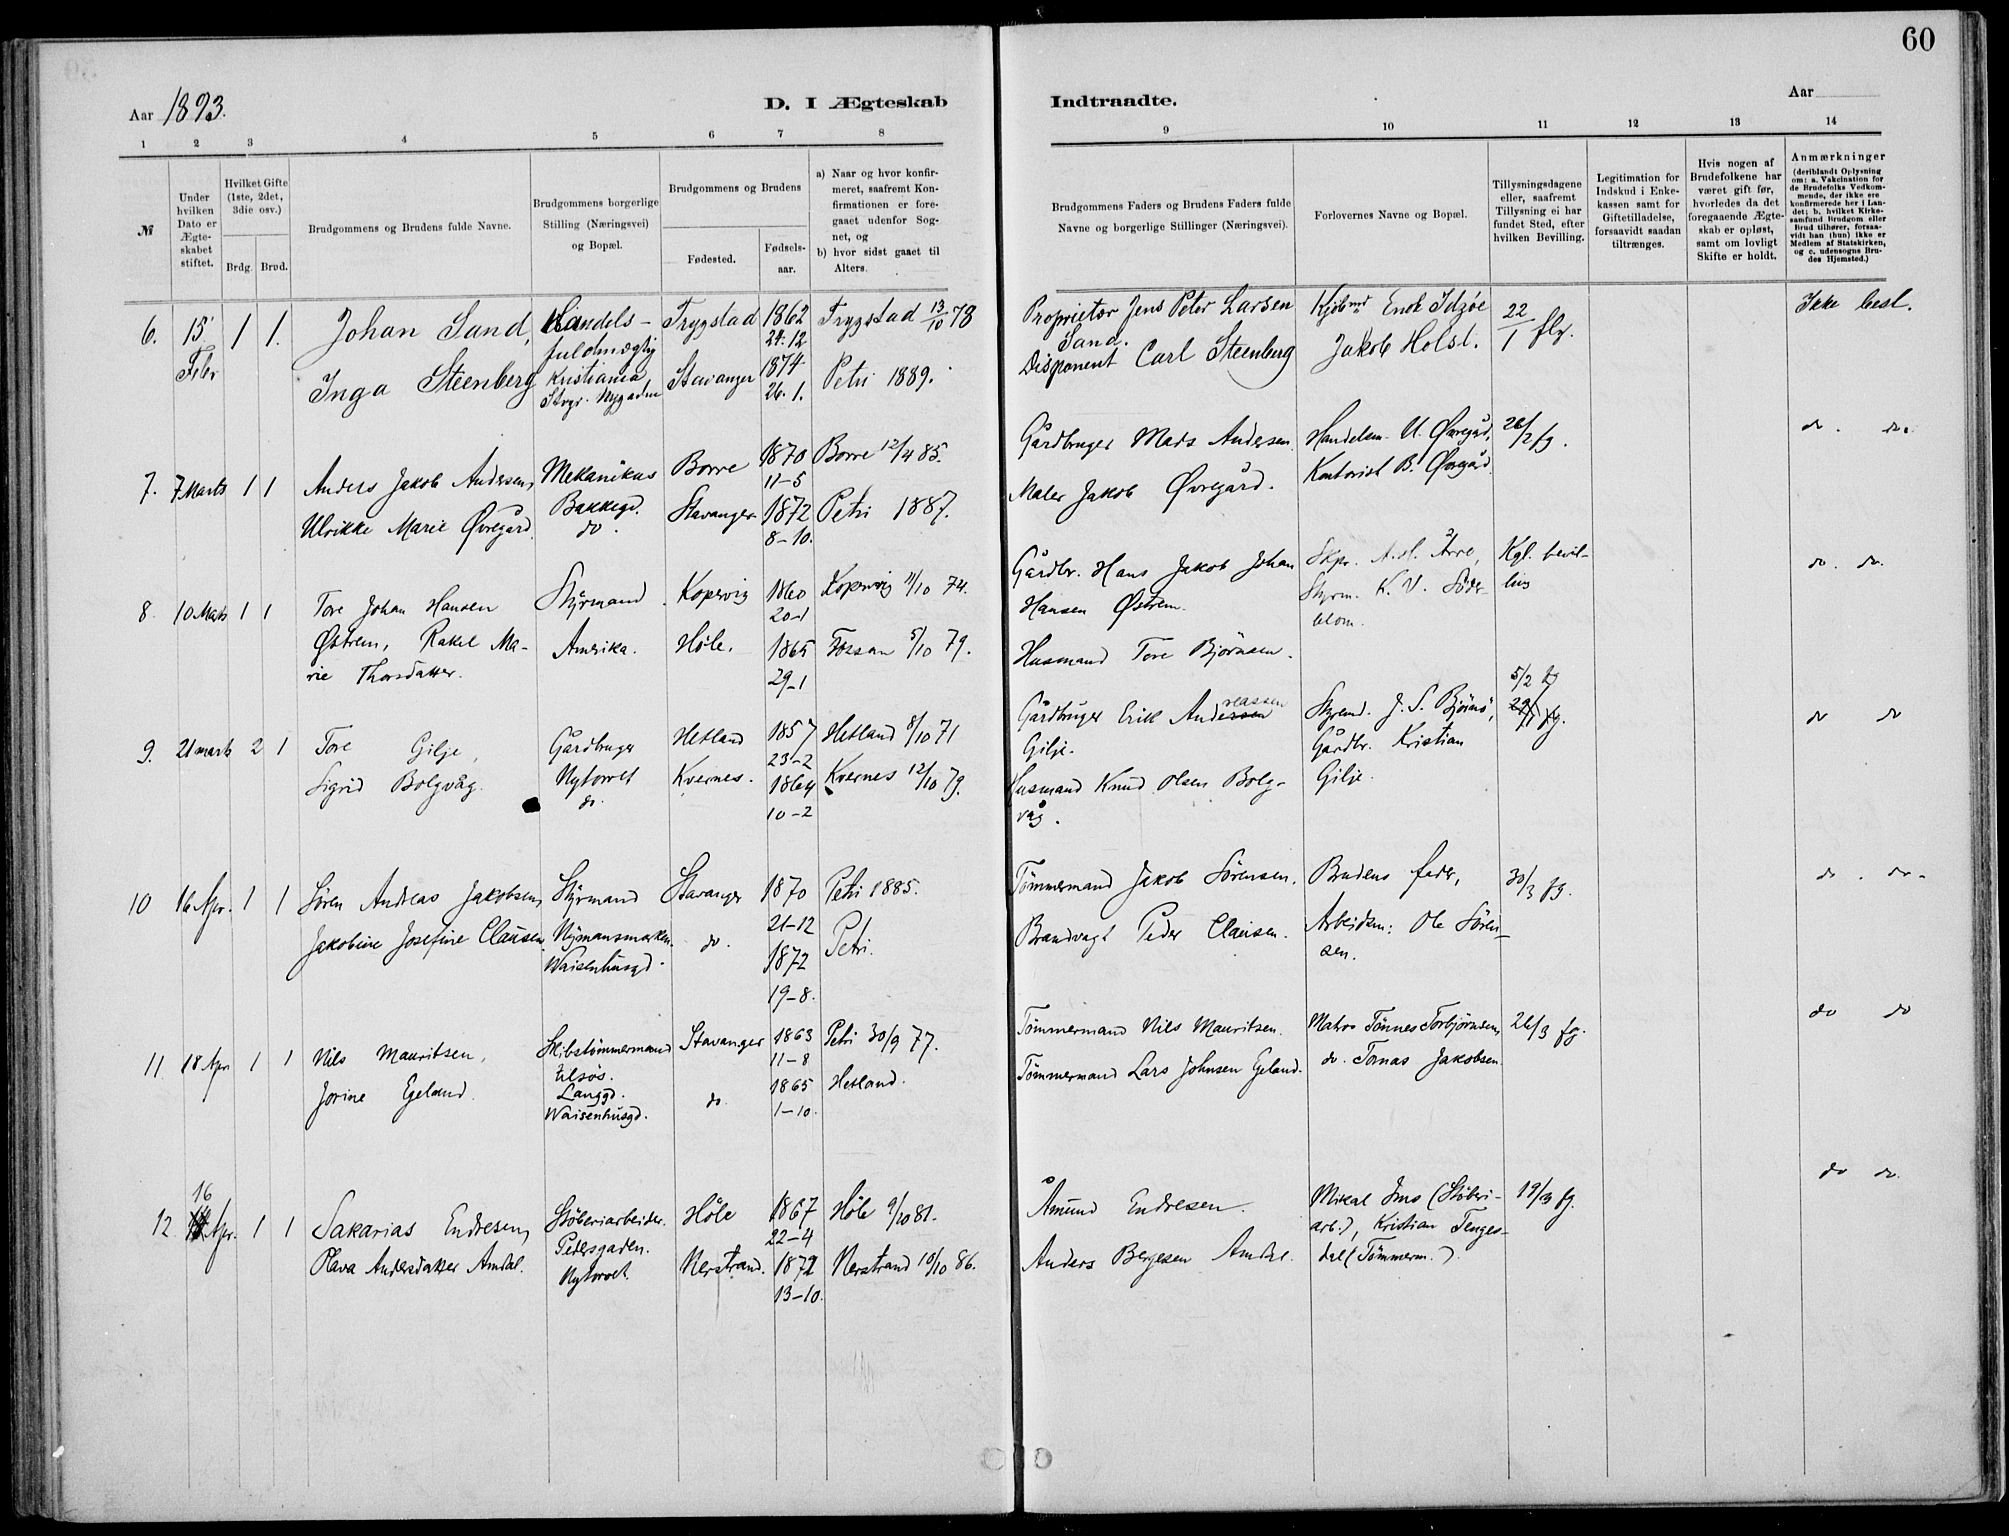 60
Aar 1893.
D. I Ægteskab
Indtraadte.
Aar
1 2 3 4 5 6 7 8
9 10 11 12 13 14
№
Under hvilken Dato er Ægteskabet stiftet.
Hvilket Gifte (1ste, 2det, 3die osv.)
Brdg. Brud.
Brudgommens og Brudens fulde Navne.
Brudgommens borgerlige Stilling (Næringsvei) og Bopæl.
Brudgommens og Brudens
Fødested.
Fødsels-aar.
a) Naar og hvor konfirmeret, saafremt Konfirmationen er foregaaet udenfor Sognet, og
b) hvor sidst gaaet til Alters.
Brudgommens Faders og Brudens Faders fulde Navne og borgerlige Stillinger (Næringsvei).
Forlovernes Navne og Bopæl.
Tillysningsdagene eller, saafremt Tillysning ei har fundet Sted, efter hvilken Bevilling.
Legitimation for Indskud i Enkekassen samt for Giftetilladelse, forsaavidt saadan tiltrænges.
Hvis nogen af Brudefolkene har været gift før, hvorledes da det foregaaende Ægteskab er opløst, samt om lovligt Skifte er holdt.
Anmærkninger
(deriblandt Oplysning om: a. Vakcination for de Brudefolks Vedkommende, der ikke ere konfirmerede her i Landet; b. hvilket Kirkesamfund Brudgom eller Brud tilhører, forsaavidt han (hun) ikke er Medlem af Statskirken, og c. udensogns Brudes Hjemsted.)
6. 15 Febr 1 1.
Johan Sand,
Inga Steenberg
Handels-
fuldmægtig
Kristiania
Stvgr. Nygaden
Trygstad 1862 24.12 Trygstad 13/10 78
Stavanger 1874 26.1. Petri 1889.
Proprietær Jens Peter Larsen
Sand.
Disponent Carl Steenberg
Kjøbmd Enok Idsøe
Jakob Holst.
22/1 flg.
Ikke besl.
7. 7 Marts 1 1
Anders Jakob Andersen,
Ulrikke Marie Øvregård.
Mekanikus
Bakkegd.
do.
Borre 1870 11-5 Borre 12/4 85.
Stavanger 1872 8-10. Petri 1887.
Gårdbruger Mads Andersen
Maler Jakob Øvregård.
Handelsm. U. Øvregård,
Kontorist B. Øvregård
26/2 fg.
do. do.
8. 10 Marts 1 1
Tore Johan Hansen
Østrem, Rakel Ma-
rie Thorsdatter.
Styrmand
Amerika.
Kopervig 1860 20-1 Kopervig 11/10 74.
Høle. 1865 29-1 Fossan 5/10 79.
Gårdbr. Hans Jakob Johan
Hansen Østrem.
Husmand Tore Bjørnsen.
Skpr. A. H. Årre,
Styrm. K. V. Söder-
blom.
Kgl. bevil-
ling
do. do.
9. 21 marts 2 1
Tore Gilje,
Sigrid Bolgvåg.
Gårdbruger
Nytorvet
do.
Hetland 1857 23-2 Hetland 8/10 71
Kvernes. 1864 10-2 Kvernes 12/10 79.
Gårdbruger Erik Andersen reassen
Gilje.
Husmand Knud Olsen Bolg-
våg.
Styrmd. J. S. Bjørnø,
Gårdbr. Kristian
Gilje.
5/2 fg
29/1 fg.
do do
10 16 Apr. 1 1
Søren Andreas Jakobsen,
Jakobine Josefine Clausen
Styrmand
Nymansmarken
Waisenhusgd.
Stavanger 1870 21-12 Petri 1885.
do. 1872 19-8. Petri.
Tømmermand Jakob Sørensen.
Brandvagt Peder Clausen.
Brudens fader,
Arbeidsm: Ole Sören-
sen.
30/3 fg.
do. do.
11 18 Apr 1 1
Nils Mauritsen,
Jorine Egeland.
Skibstømmermand
Langgd.
Waisenhusgd.
Stavanger 1863 11-8 Petri 30/9 77.
do. 1865 1-10. Hetland.
Tømmermand Nils Mauritsen.
Tømmermand Lars Johnsen Egeland.
Matros Tönnes Torbjørnsen,
do. Tomas Jakobsen
26/3 fg.
do do
12 16 Apr. 1 1
Sakarias Endresen,
Olava Andersdatter Amdal.
Støberiarbeider.
Pedersgaden.
Nytorvet.
Høle 1867 22-4 Høle 9/10 81.
Nerstrand. 1872 13-10. Nerstrand 10/10 86.
Åmund Endresen.
Anders Bergesen Amdal.
Mikal Ims (Støberi-
arb.), Kristian Tenges-
dal (Tømmerm.)
19/3 fg.
do do.